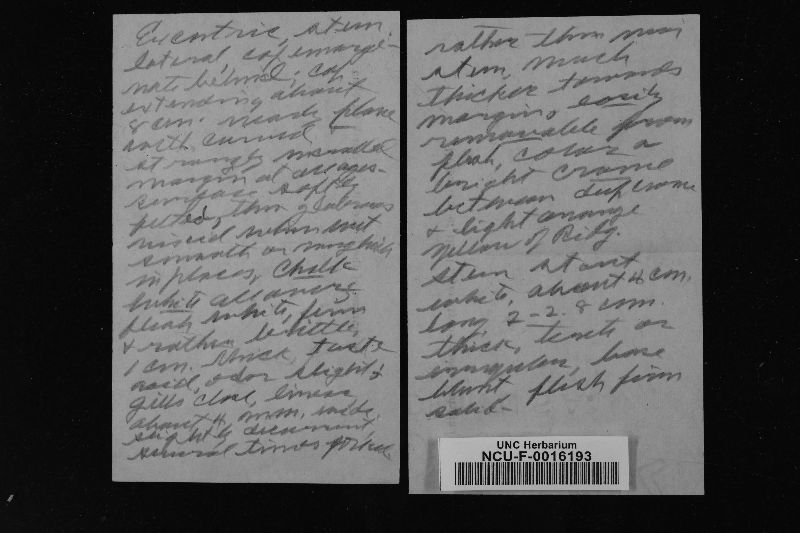 Excentric, stem
lateral, cap emargi-
nate behind, cap
extending about
8 cm. nearly plane
with curved
strongly incurved
margin at all ages-
surface softly
felted, then glabrous
viscid when wet
smooth or roughish
in places, chalk
white all over,
flesh white, firm
& rather brittle,
1 cm. thick, taste
acid, odor slight;
gills close, linear
about 4 mm. wide,
slightly decurrent
several times forked
rather than near
stem, much
thicker towards
margin, easily
removable from
flesh, color a
bright creme
between deep creme
& light orange
yellow of Ridg.
Stem stout
white, about 4 cm.
long 2-2.8 cm.
thick, terete or
irregular, base
blunt flesh firm
solid-
UNC Herbarium
NCU-F-0016193